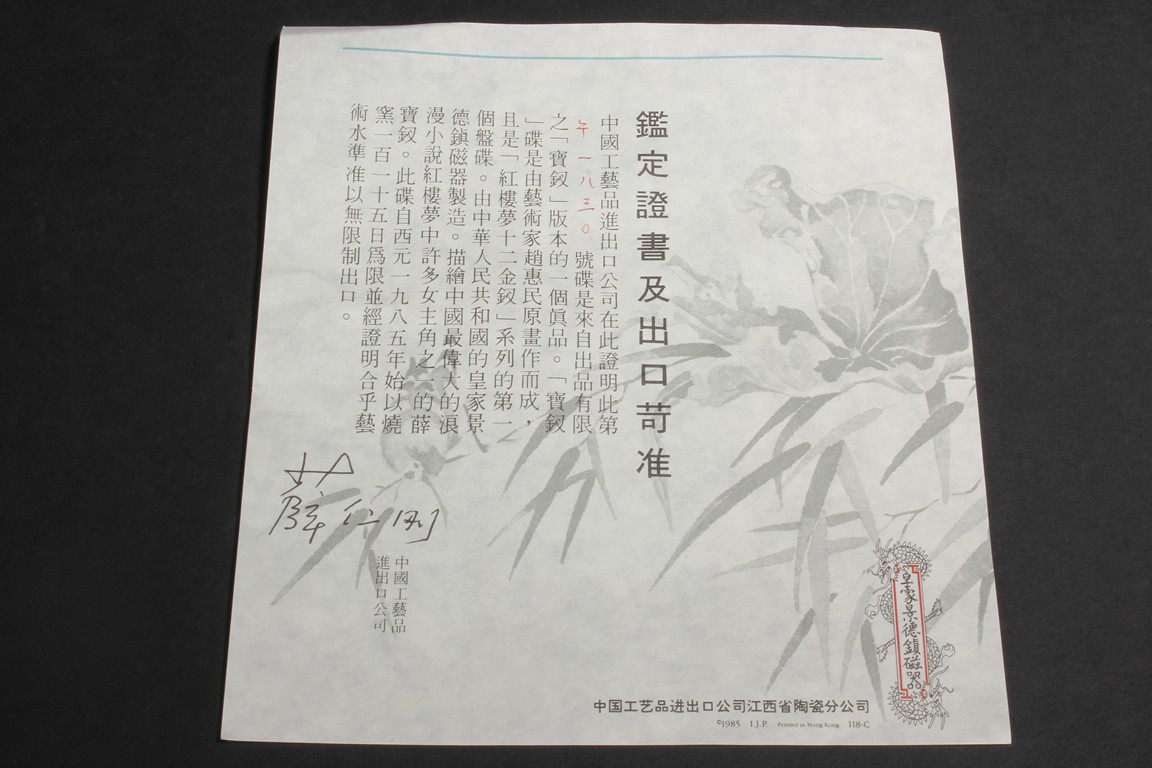 鑑定證書及出口苛准
中國工藝品進出口公司在此證明此第
午一八三〇號碟是來自出品有限
之「寶釵」版本的一個眞品。「寶釵
」碟是由藝術家趙惠民原畫作而成，
且是「紅樓夢十二金釵」系列的第一
個盤碟。由中華人民共和國的皇家景
德鎭磁器製造。描繪中國最偉大的浪
漫小說紅樓夢中許多女主角之一的薛
寶釵。此碟自西元一九八五年始以燒
窯一百一十五日爲限並經證明合乎藝
術水準准以無限制出口。
中國工藝品
進出口公司
皇家景德鎭磁器
中国工艺品进出口公司江西省陶瓷分公司
©1985 I.J.P. Printed in Hong Kong 118-C